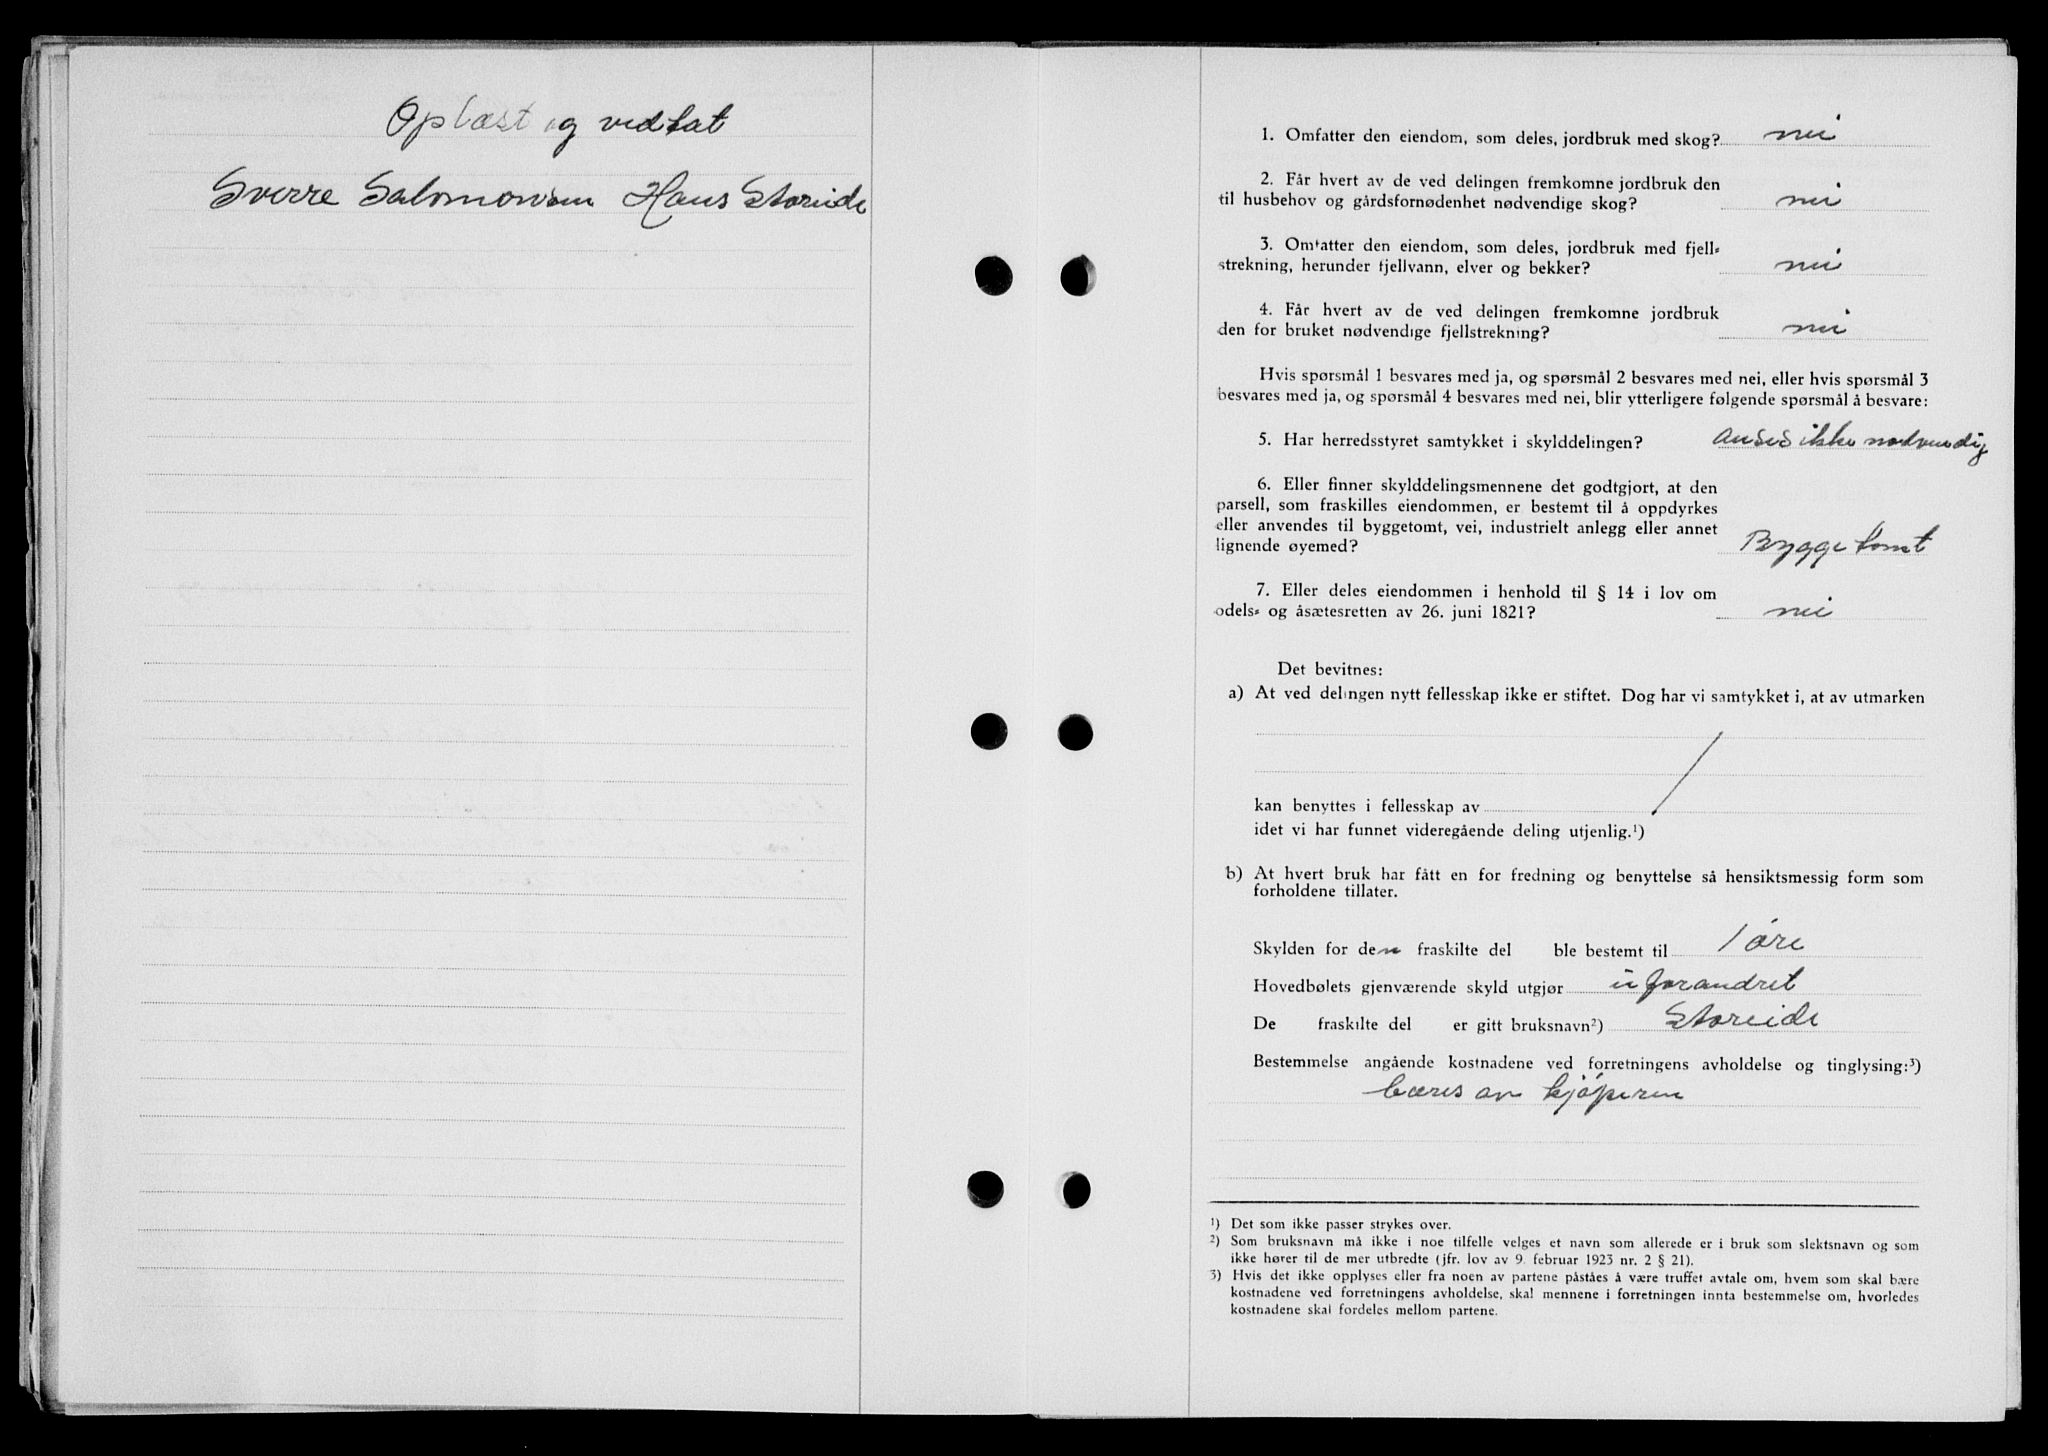 Oplæst og vedtat
Sverre Salomonsen Hans Storeide
1. Omfatter den eiendom, som deles, jordbruk med skog? nei
2. Får hvert av de ved delingen fremkomne jordbruk den
til husbehov og gårdsfornødenhet nødvendige skog? nei
3. Omfatter den eiendom, som deles, jordbruk med fjell-
strekning, herunder fjellvann, elver og bekker? nei
4. Får hvert av de ved delingen fremkomne jordbruk
den for bruket nødvendige fjellstrekning? nei
Hvis spørsmål 1 besvares med ja, og spørsmål 2 besvares med nei, eller hvis spørsmål 3
besvares med ja, og spørsmål 4 besvares med nei, blir ytterligere følgende spørsmål å besvare:
5. Har herredsstyret samtykket i skylddelingen? Anses ikke nødvendig
6. Eller finner skylddelingsmennene det godtgjort, at den
parsell, som fraskilles eiendommen, er bestemt til å oppdyrkes
eller anvendes til byggetomt, vei, industrielt anlegg eller annet
lignende øyemed? Byggetomt
7. Eller deles eiendommen i henhold til § 14 i lov om
odels- og åsætesretten av 26. juni 1821? nei
Det bevitnes:
a) At ved delingen nytt fellesskap ikke er stiftet. Dog har vi samtykket i, at av utmarken
kan benyttes i fellesskap av
idet vi har funnet videregående deling utjenlig.¹)
b) At hvert bruk har fått en for fredning og benyttelse så hensiktsmessig form som
forholdene tillater.
Skylden for den fraskilte del ble bestemt til 1 øre
Hovedbølets gjenværende skyld utgjør uforandret
De fraskilte del er gitt bruksnavn²) Storeide
Bestemmelse angående kostnadene ved forretningens avholdelse og tinglysing:³)
bæres av kjøperen
¹) Det som ikke passer strykes over.
²) Som bruksnavn må ikke i noe tilfelle velges et navn som allerede er i bruk som slektsnavn og som
ikke hører til de mer utbredte (jfr. lov av 9. februar 1923 nr. 2 § 21).
³) Hvis det ikke opplyses eller fra noen av partene påståes å være truffet avtale om, hvem som skal bære
kostnadene ved forretningens avholdelse, skal mennene i forretningen innta bestemmelse om, hvorledes
kostnadene skal fordeles mellom partene.